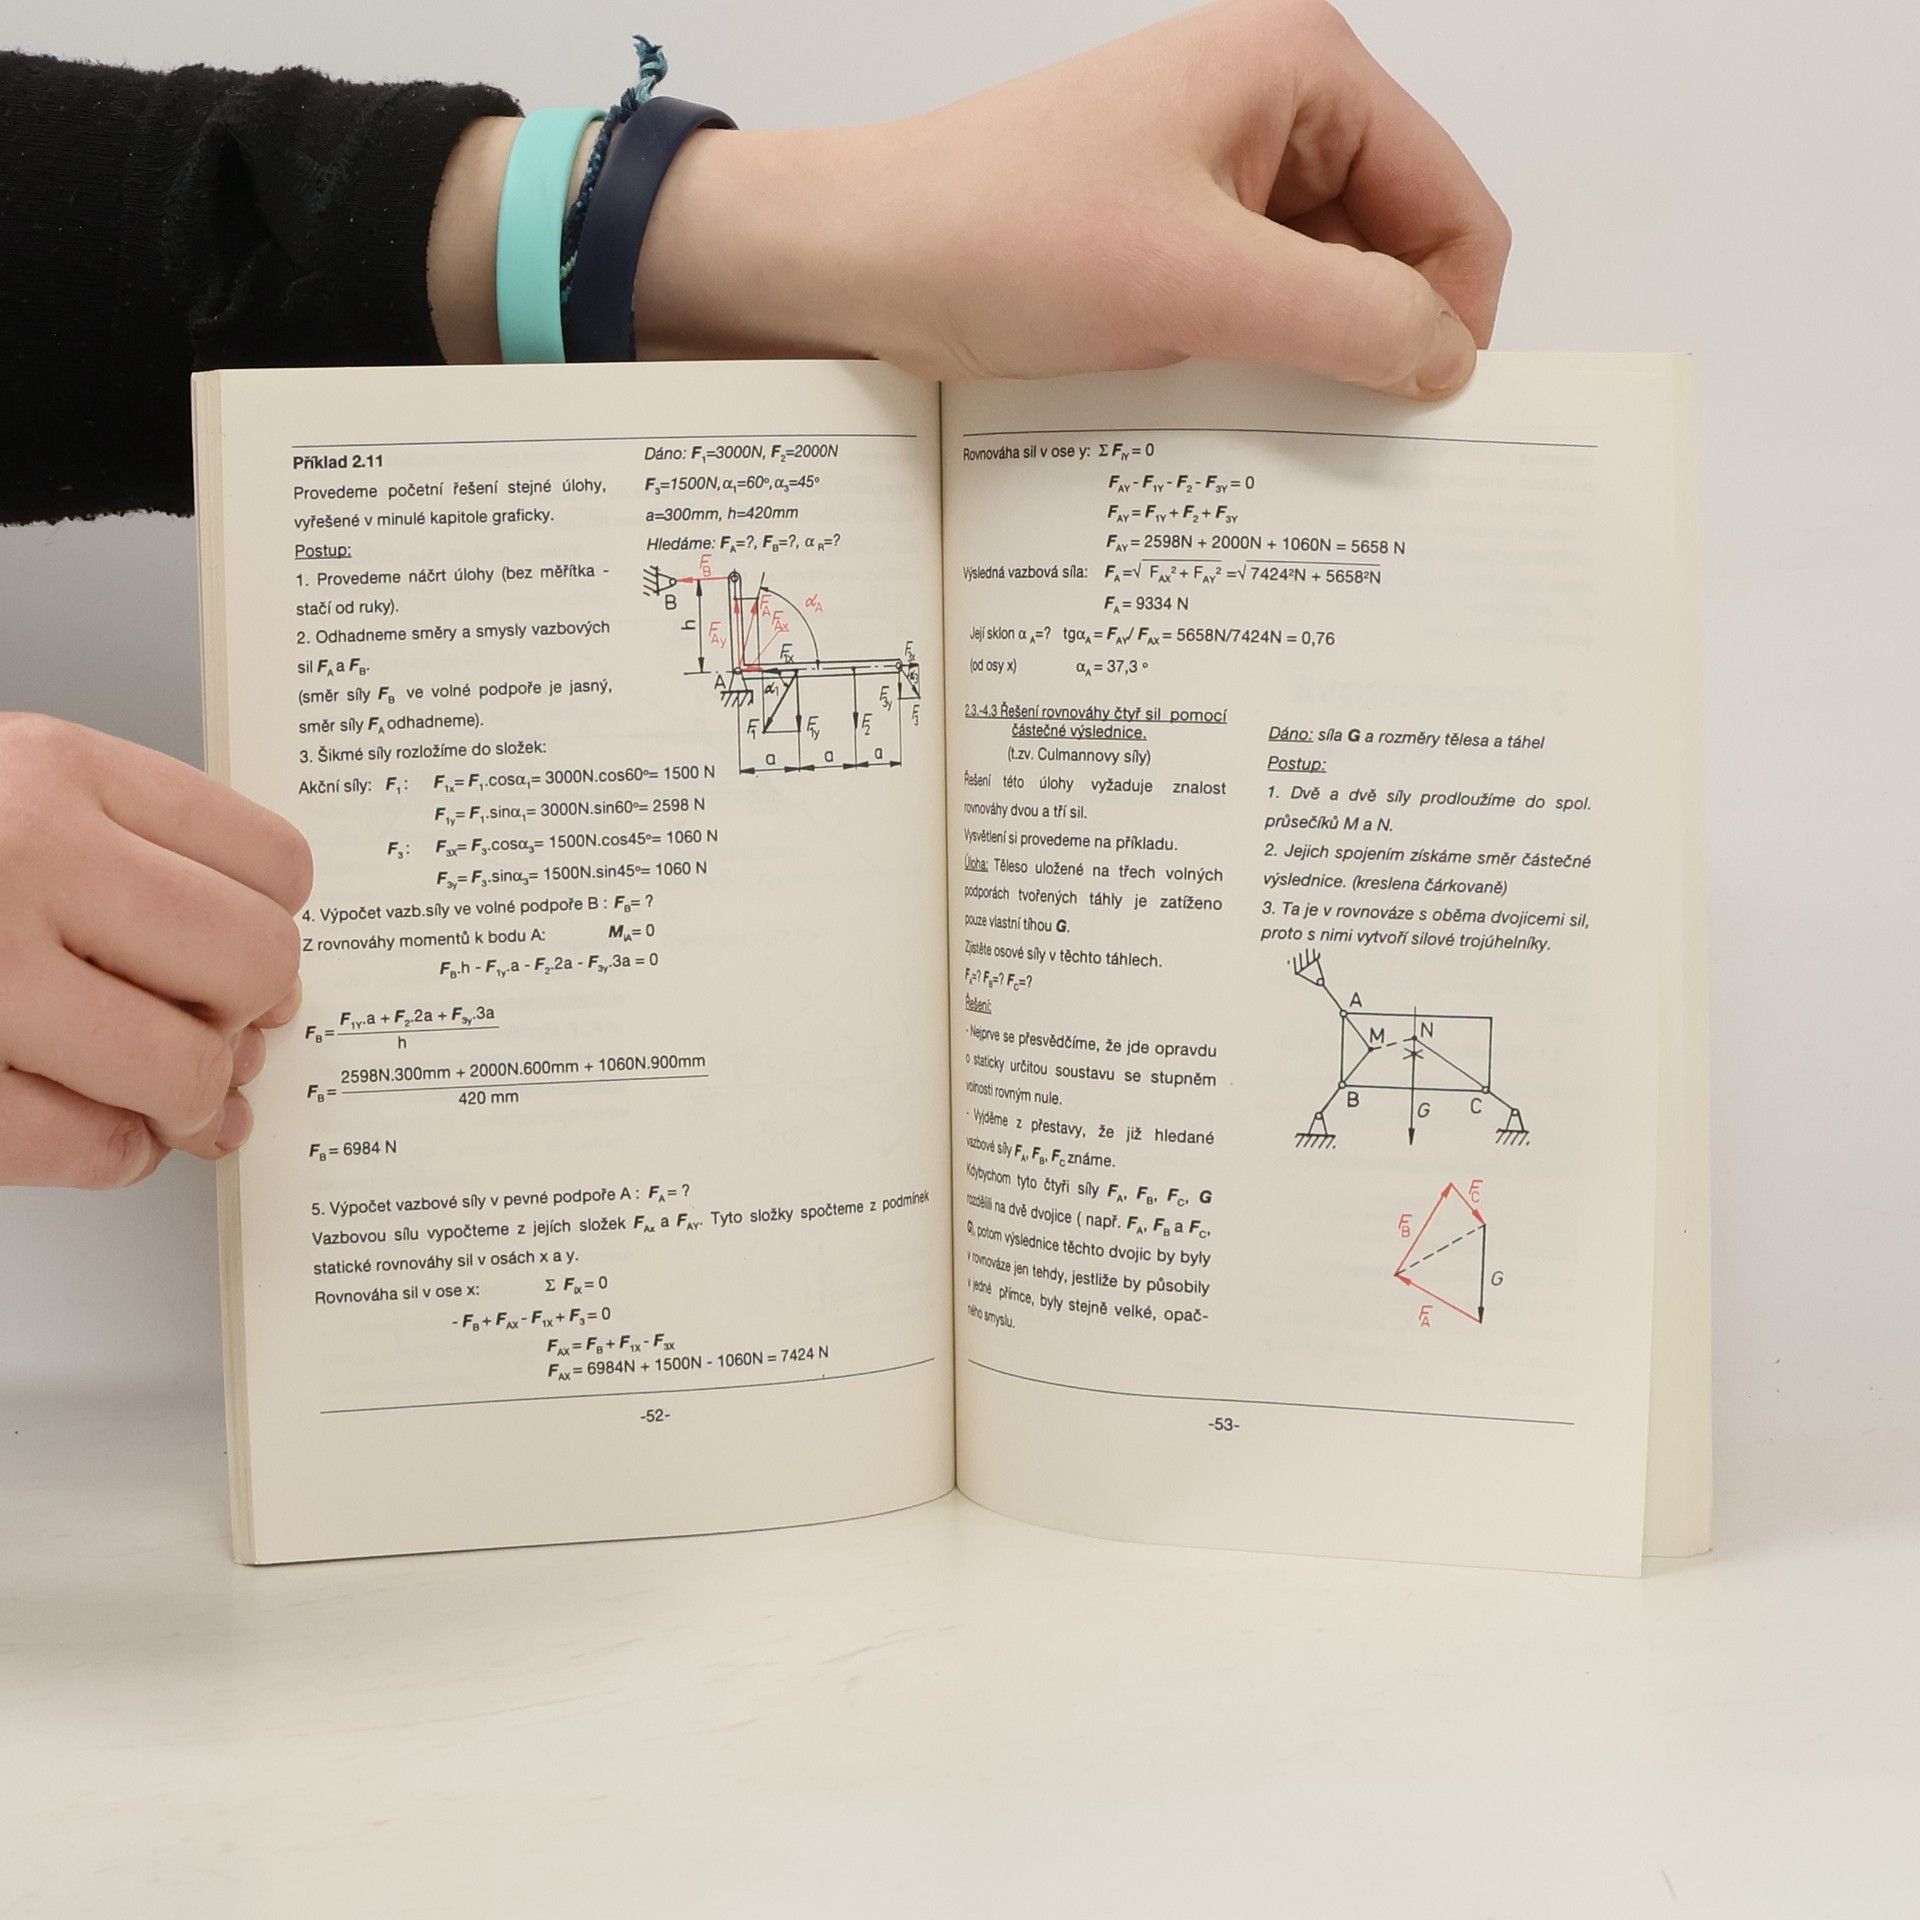 Příklad 2.11
Provedeme početní řešení stejné úlohy,
vyřešené v minulé kapitole graficky.
Postup:
1. Provedeme náčrt úlohy (bez měřítka -
stačí od ruky).
2. Odhadneme směry a smysly vazbových
sil F_A a F_B.
(směr síly F_B ve volné podpoře je jasný,
směr síly F_A odhadneme).
3. Šikmé síly rozložíme do složek:
Dáno: F₁=3000N, F₂=2000N
F₃=1500N, α₁=60°, α₃=45°
a=300mm, h=420mm
Hledáme: F_A=?, F_B=?, α_R=?
F_B
B
h
F_Ay
F_A
F_Ax
α_A
F_1x
F_3x
A
α₁
α₃
F_3y
F₃
F₁
F_1y
F₂
a
a
a
Akční síly: F₁: F_1x= F₁.cosα₁= 3000N.cos60°= 1500 N
F_1y= F₁.sinα₁= 3000N.sin60°= 2598 N
F₃: F_3x= F₃.cosα₃= 1500N.cos45°= 1060 N
F_3y= F₃.sinα₃= 1500N.sin45°= 1060 N
4. Výpočet vazb.síly ve volné podpoře B : F_B= ?
Z rovnováhy momentů k bodu A: M_iA= 0
F_B.h - F_1y.a - F₂.2a - F_3y.3a = 0
F_B= (F_1Y.a + F₂.2a + F_3y.3a) / h
F_B= (2598N.300mm + 2000N.600mm + 1060N.900mm) / 420 mm
F_B= 6984 N
5. Výpočet vazbové síly v pevné podpoře A : F_A= ?
Vazbovou sílu vypočteme z jejích složek F_Ax a F_AY. Tyto složky spočteme z podmínek
statické rovnováhy sil v osách x a y.
Rovnováha sil v ose x: Σ F_ix= 0
- F_B + F_AX - F_1X + F₃= 0
F_AX= F_B + F_1X - F_3X
F_AX= 6984N + 1500N - 1060N = 7424 N
-52-
Rovnováha sil v ose y: Σ F_iY= 0
F_AY - F_1Y - F₂ - F_3Y= 0
F_AY= F_1Y + F₂ + F_3Y
F_AY= 2598N + 2000N + 1060N = 5658 N
Výsledná vazbová síla: F_A=√ F_AX² + F_AY² =√ 7424²N + 5658²N
F_A= 9334 N
Její sklon α_A=? tgα_A= F_AY/ F_AX= 5658N/7424N = 0,76
(od osy x) α_A= 37,3 °
2.3.-4.3 Řešení rovnováhy čtyř sil pomocí
částečné výslednice.
(t.zv. Culmannovy síly)
Řešení této úlohy vyžaduje znalost
rovnováhy dvou a tří sil.
Vysvětlení si provedeme na příkladu.
Úloha: Těleso uložené na třech volných
podporách tvořených táhly je zatíženo
pouze vlastní tíhou G.
Zjistěte osové síly v těchto táhlech.
F_A=? F_B=? F_C=?
Řešení:
- Nejprve se přesvědčíme, že jde opravdu
o staticky určitou soustavu se stupněm
volnosti rovným nule.
- Vyjděme z přestavy, že již hledané
vazbové síly F_A, F_B, F_C známe.
Kdybychom tyto čtyři síly F_A, F_B, F_C, G
rozdělili na dvě dvojice ( např. F_A, F_B a F_C,
G), potom výslednice těchto dvojic by byly
v rovnováze jen tehdy, jestliže by působily
v jedné přímce, byly stejně velké, opač-
ného smyslu.
Dáno: síla G a rozměry tělesa a táhel
Postup:
1. Dvě a dvě síly prodloužíme do spol.
průsečíků M a N.
2. Jejich spojením získáme směr částečné
výslednice. (kreslena čárkovaně)
3. Ta je v rovnováze s oběma dvojicemi sil,
proto s nimi vytvoří silové trojúhelníky.
A
M
N
B
G
C
F_C
F_B
G
F_A
-53-